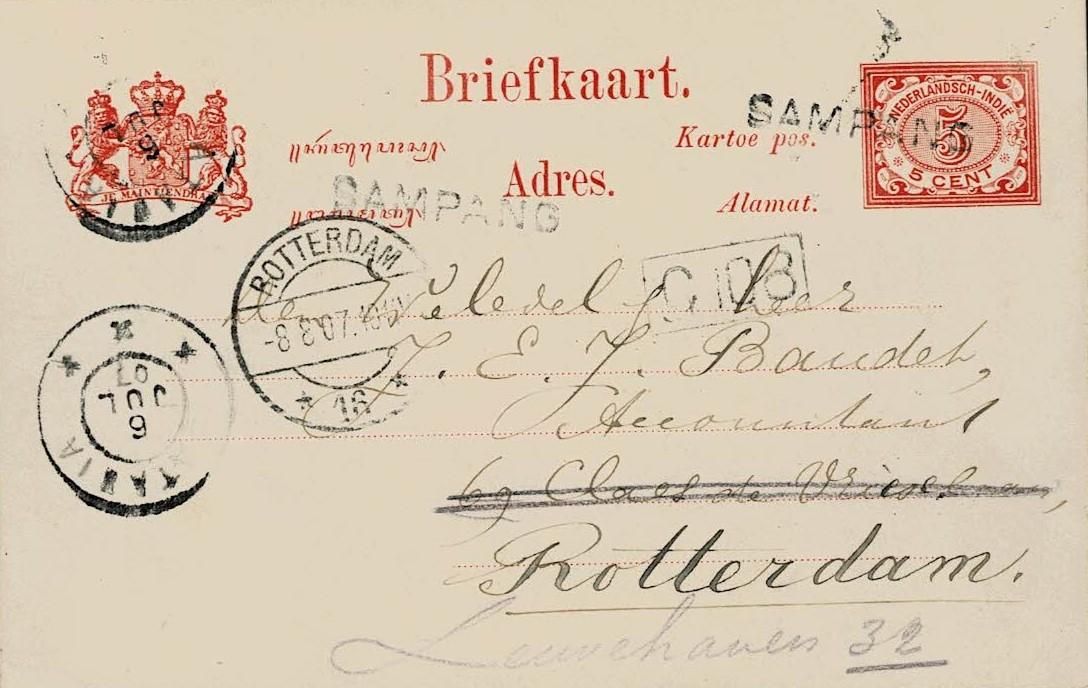 Briefkaart.
Kartoe pos.
Adres.
Alamat.
JE MAINTIENDRAI
NEDERLANDSCH-INDIË
5
5 CENT
SAMPANG
SAMPANG
ROTTERDAM
-8 8 07.
16
C 108
JUL
9
07
JUL
9
den WelEdel heer
J. E. J. Baudet,
Accountant
69 Claes de Vrieselaan,
Rotterdam.
Leuvehaven 32